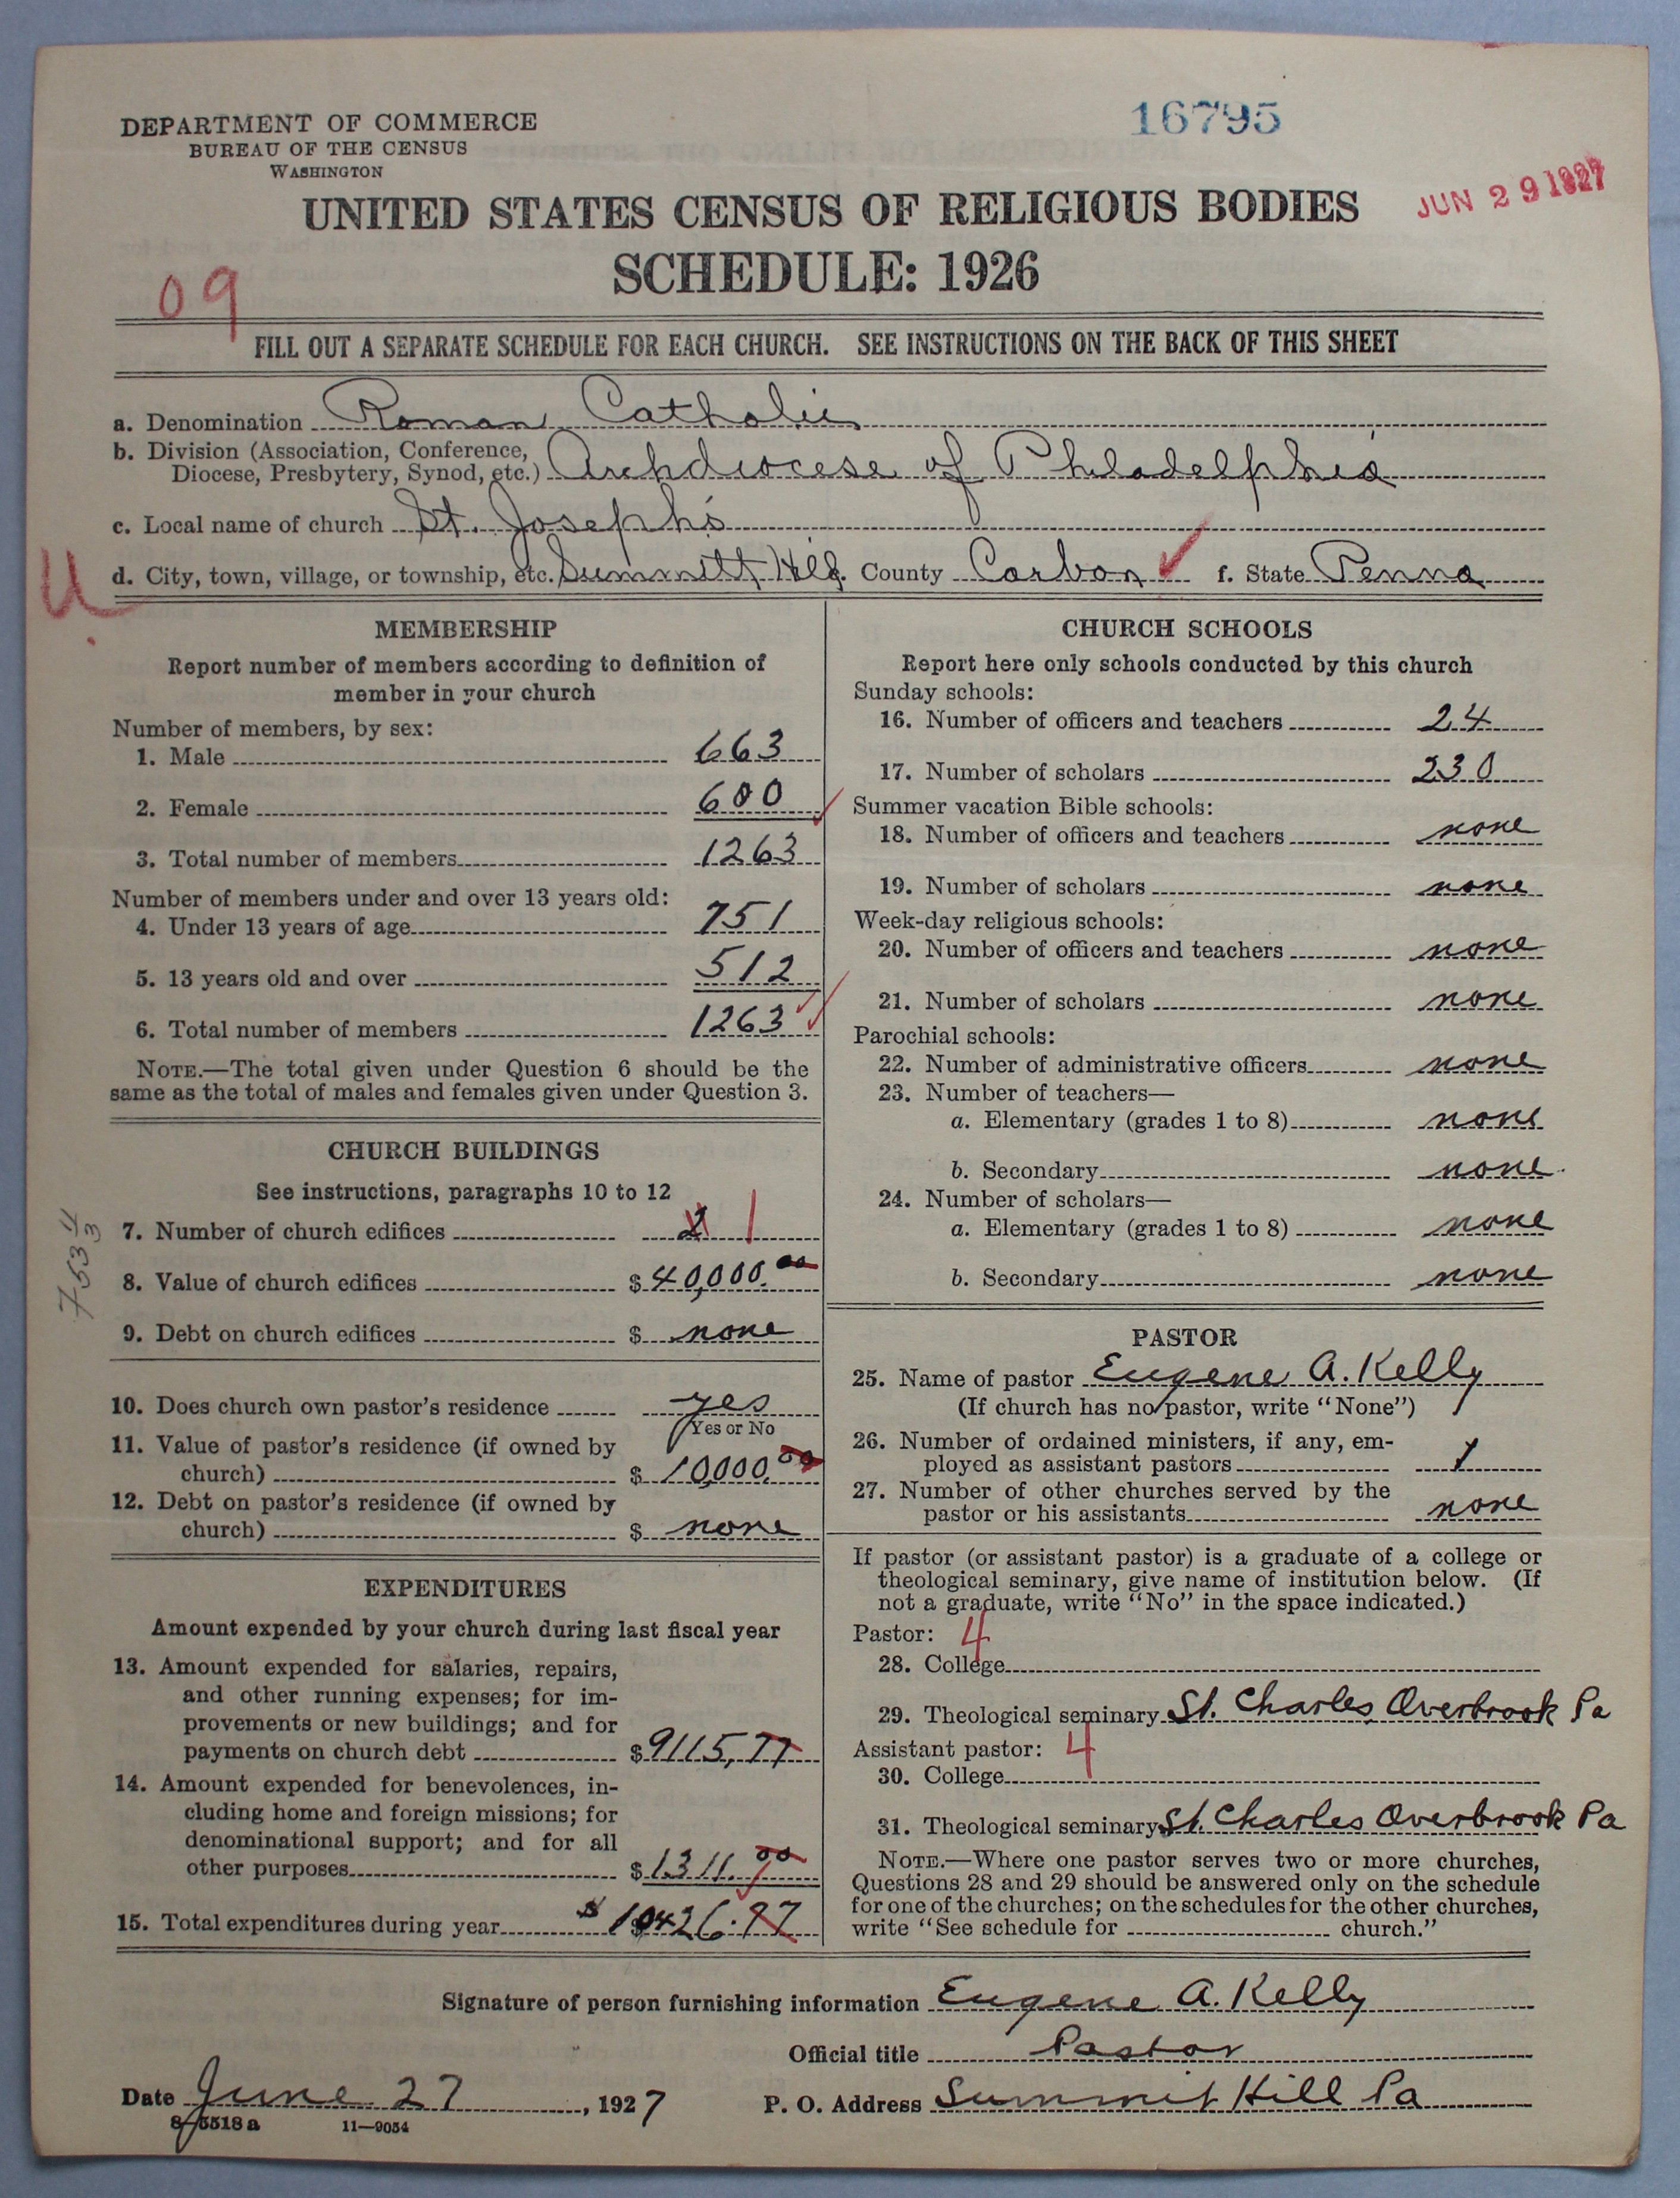 DEPARTMENT OF COMMERCE
BUREAU OF THE CENSUS
WASHINGTON
16795
JUN 29 1927
UNITED STATES CENSUS OF RELIGIOUS BODIES
SCHEDULE: 1926
09
FILL OUT A SEPARATE SCHEDULE FOR EACH CHURCH. SEE INSTRUCTIONS ON THE BACK OF THIS SHEET
a. Denomination Roman Catholic
b. Division (Association, Conference,
Diocese, Presbytery, Synod, etc.) Archdiocese of Philadelphia
c. Local name of church St. Joseph's
U
d. City, town, village, or township, etc. Summitt Hill County Carbon f. State Penna
MEMBERSHIP
Report number of members according to definition of
member in your church
Number of members, by sex:
1. Male 663
2. Female 600
3. Total number of members 1263
Number of members under and over 13 years old:
4. Under 13 years of age 751
5. 13 years old and over 512
6. Total number of members 1263
NOTE.—The total given under Question 6 should be the
same as the total of males and females given under Question 3.
CHURCH BUILDINGS
See instructions, paragraphs 10 to 12
7. Number of church edifices 2 1
8. Value of church edifices $ 40,000.00
9. Debt on church edifices $ none
10. Does church own pastor's residence yes
Yes or No
11. Value of pastor's residence (if owned by
church) $ 10,000.00
12. Debt on pastor's residence (if owned by
church) $ none
EXPENDITURES
Amount expended by your church during last fiscal year
13. Amount expended for salaries, repairs,
and other running expenses; for im-
provements or new buildings; and for
payments on church debt $ 9115,77
14. Amount expended for benevolences, in-
cluding home and foreign missions; for
denominational support; and for all
other purposes $ 1311.
15. Total expenditures during year $ 10426.97
CHURCH SCHOOLS
Report here only schools conducted by this church
Sunday schools:
16. Number of officers and teachers 24
17. Number of scholars 230
Summer vacation Bible schools:
18. Number of officers and teachers none
19. Number of scholars none
Week-day religious schools:
20. Number of officers and teachers none
21. Number of scholars none
Parochial schools:
22. Number of administrative officers none
23. Number of teachers—
a. Elementary (grades 1 to 8) none
b. Secondary none
24. Number of scholars—
a. Elementary (grades 1 to 8) none
b. Secondary none
PASTOR
25. Name of pastor Eugene A. Kelly
(If church has no pastor, write "None")
26. Number of ordained ministers, if any, em-
ployed as assistant pastors 1
27. Number of other churches served by the
pastor or his assistants none
If pastor (or assistant pastor) is a graduate of a college or
theological seminary, give name of institution below. (If
not a graduate, write "No" in the space indicated.)
Pastor: 4
28. College
29. Theological seminary St. Charles Overbrook Pa
Assistant pastor: 4
30. College
31. Theological seminary St. Charles Overbrook Pa
NOTE.—Where one pastor serves two or more churches,
Questions 28 and 29 should be answered only on the schedule
for one of the churches; on the schedules for the other churches,
write "See schedule for church."
Signature of person furnishing information Eugene A. Kelly
Official title Pastor
Date June 27, 1927 P. O. Address Summit Hill Pa
8-5518a 11—9054